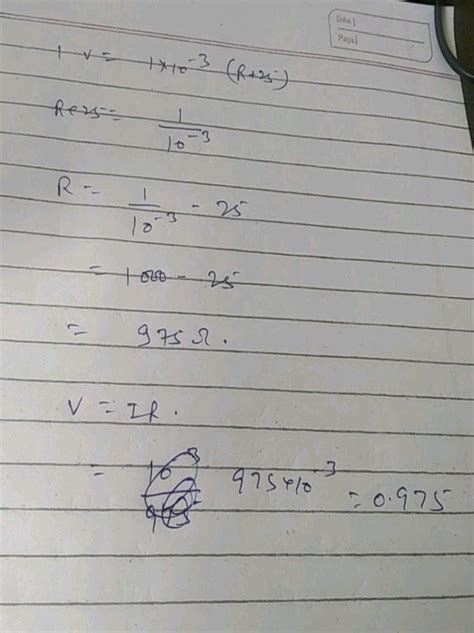 Date
Page
1 V = 1×10⁻³ (R+25)
R+25 = 1/10⁻³
R = 1/10⁻³ - 25
= 1000 - 25
= 975 Ω.
V = IR.
= 975×10⁻³ = 0.975